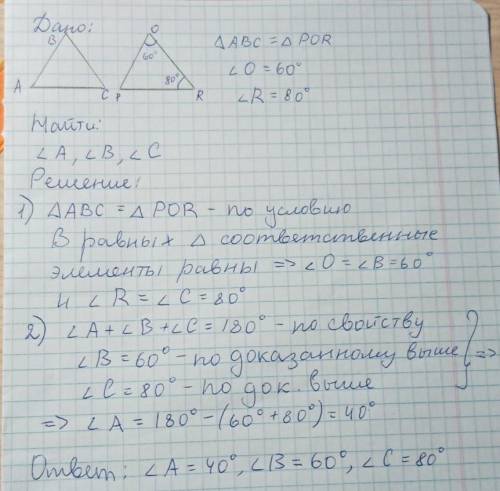 Дано:
B
A
C
O
60°
80°
P
R
△ABC = △POR
∠O = 60°
∠R = 80°
Найти:
∠A, ∠B, ∠C
Решение:
1) △ABC = △POR - по условию
В равных △ соответственные
элементы равны => ∠O = ∠B = 60°
и ∠R = ∠C = 80°
2) ∠A + ∠B + ∠C = 180° - по свойству
∠B = 60° - по доказанному выше } =>
∠C = 80° - по док. выше
=> ∠A = 180° - (60° + 80°) = 40°
Ответ: ∠A = 40°, ∠B = 60°, ∠C = 80°